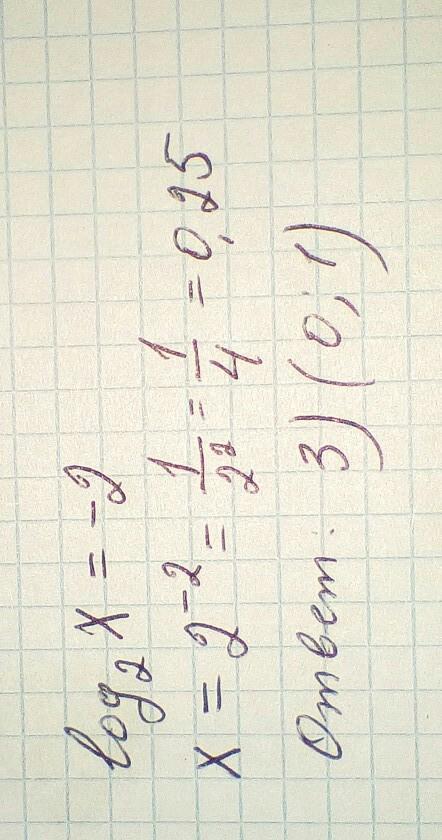 log₂ x = -2
x = 2⁻² = 1/2² = 1/4 = 0,25
Ответ. 3) (0; 1)